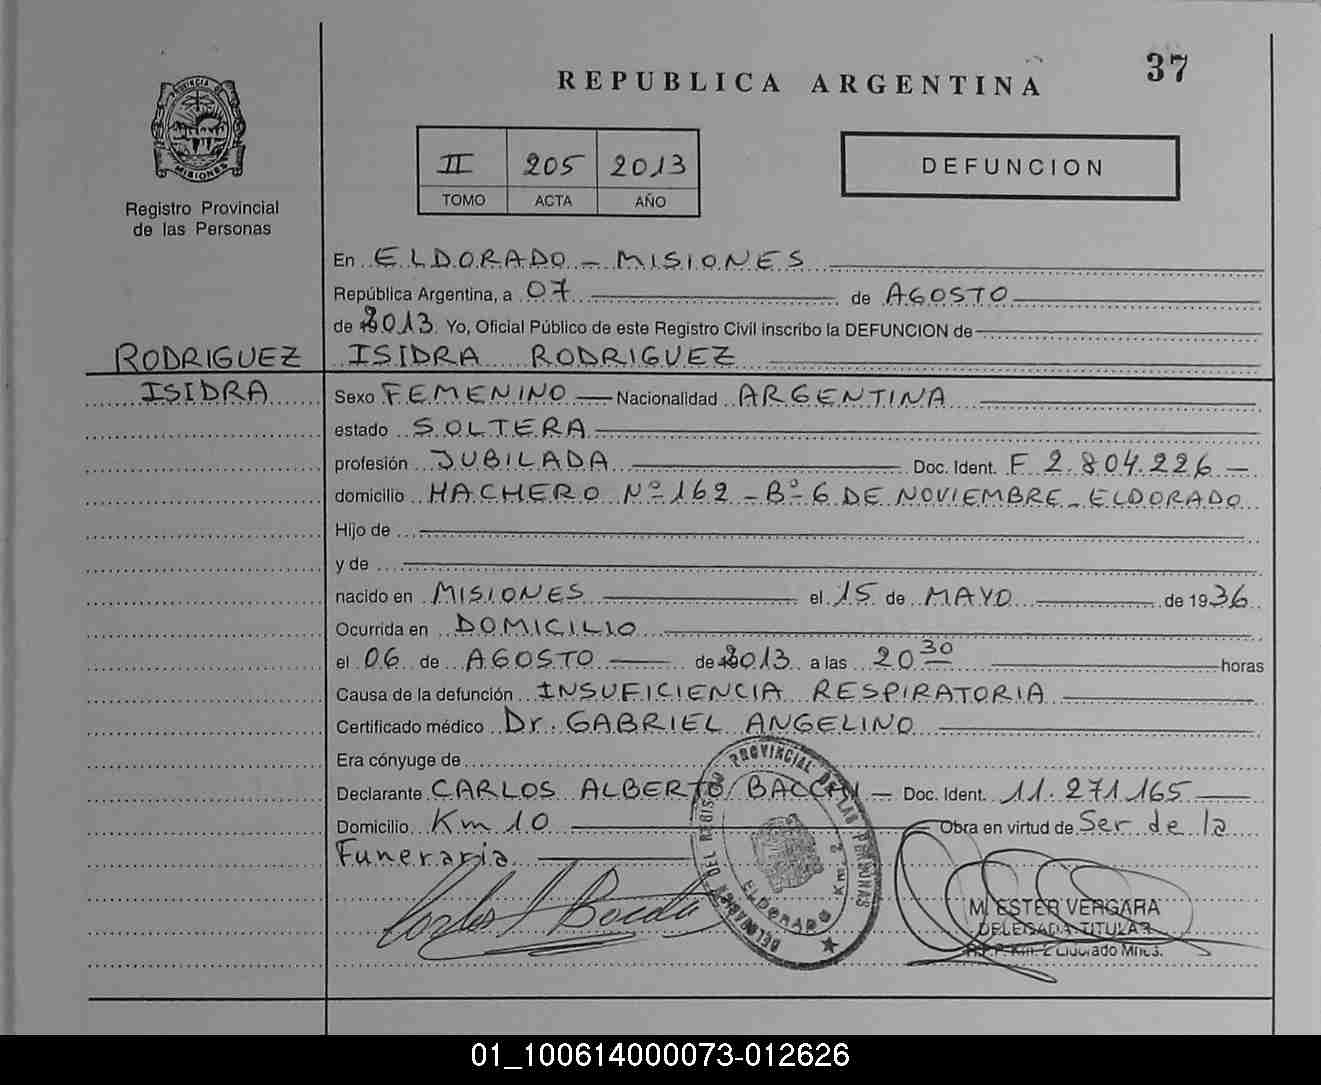 37
REPUBLICA ARGENTINA
PROVINCIA DE
MISIONES
Registro Provincial
de las Personas
II 205 2013
TOMO ACTA AÑO
DEFUNCION
En ELDORADO - MISIONES
República Argentina, a 07 de AGOSTO
de 2013. Yo, Oficial Público de este Registro Civil inscribo la DEFUNCION de
RODRIGUEZ ISIDRA RODRIGUEZ
ISIDRA Sexo FEMENINO Nacionalidad ARGENTINA
estado SOLTERA
profesión JUBILADA Doc. Ident. F 2.804.226 -
domicilio HACHERO Nº 162 - Bº 6 DE NOVIEMBRE - ELDORADO
Hijo de
y de
nacido en MISIONES el 15 de MAYO de 1936
Ocurrida en DOMICILIO
el 06 de AGOSTO de 2013 a las 20 30 horas
Causa de la defunción INSUFICIENCIA RESPIRATORIA
Certificado médico Dr. GABRIEL ANGELINO
Era cónyuge de
Declarante CARLOS ALBERTO - Doc. Ident. 11.271.165
Domicilio Km 10 Obra en virtud de Ser de la
Funeraria
PROVINCIAL DE LAS PERSONAS
ELDORADO Km. 2
M. ESTER VERGARA
DELEGADA TITULAR
R.P.P. Km. 2 Eldorado Mnes.
01_100614000073-012626